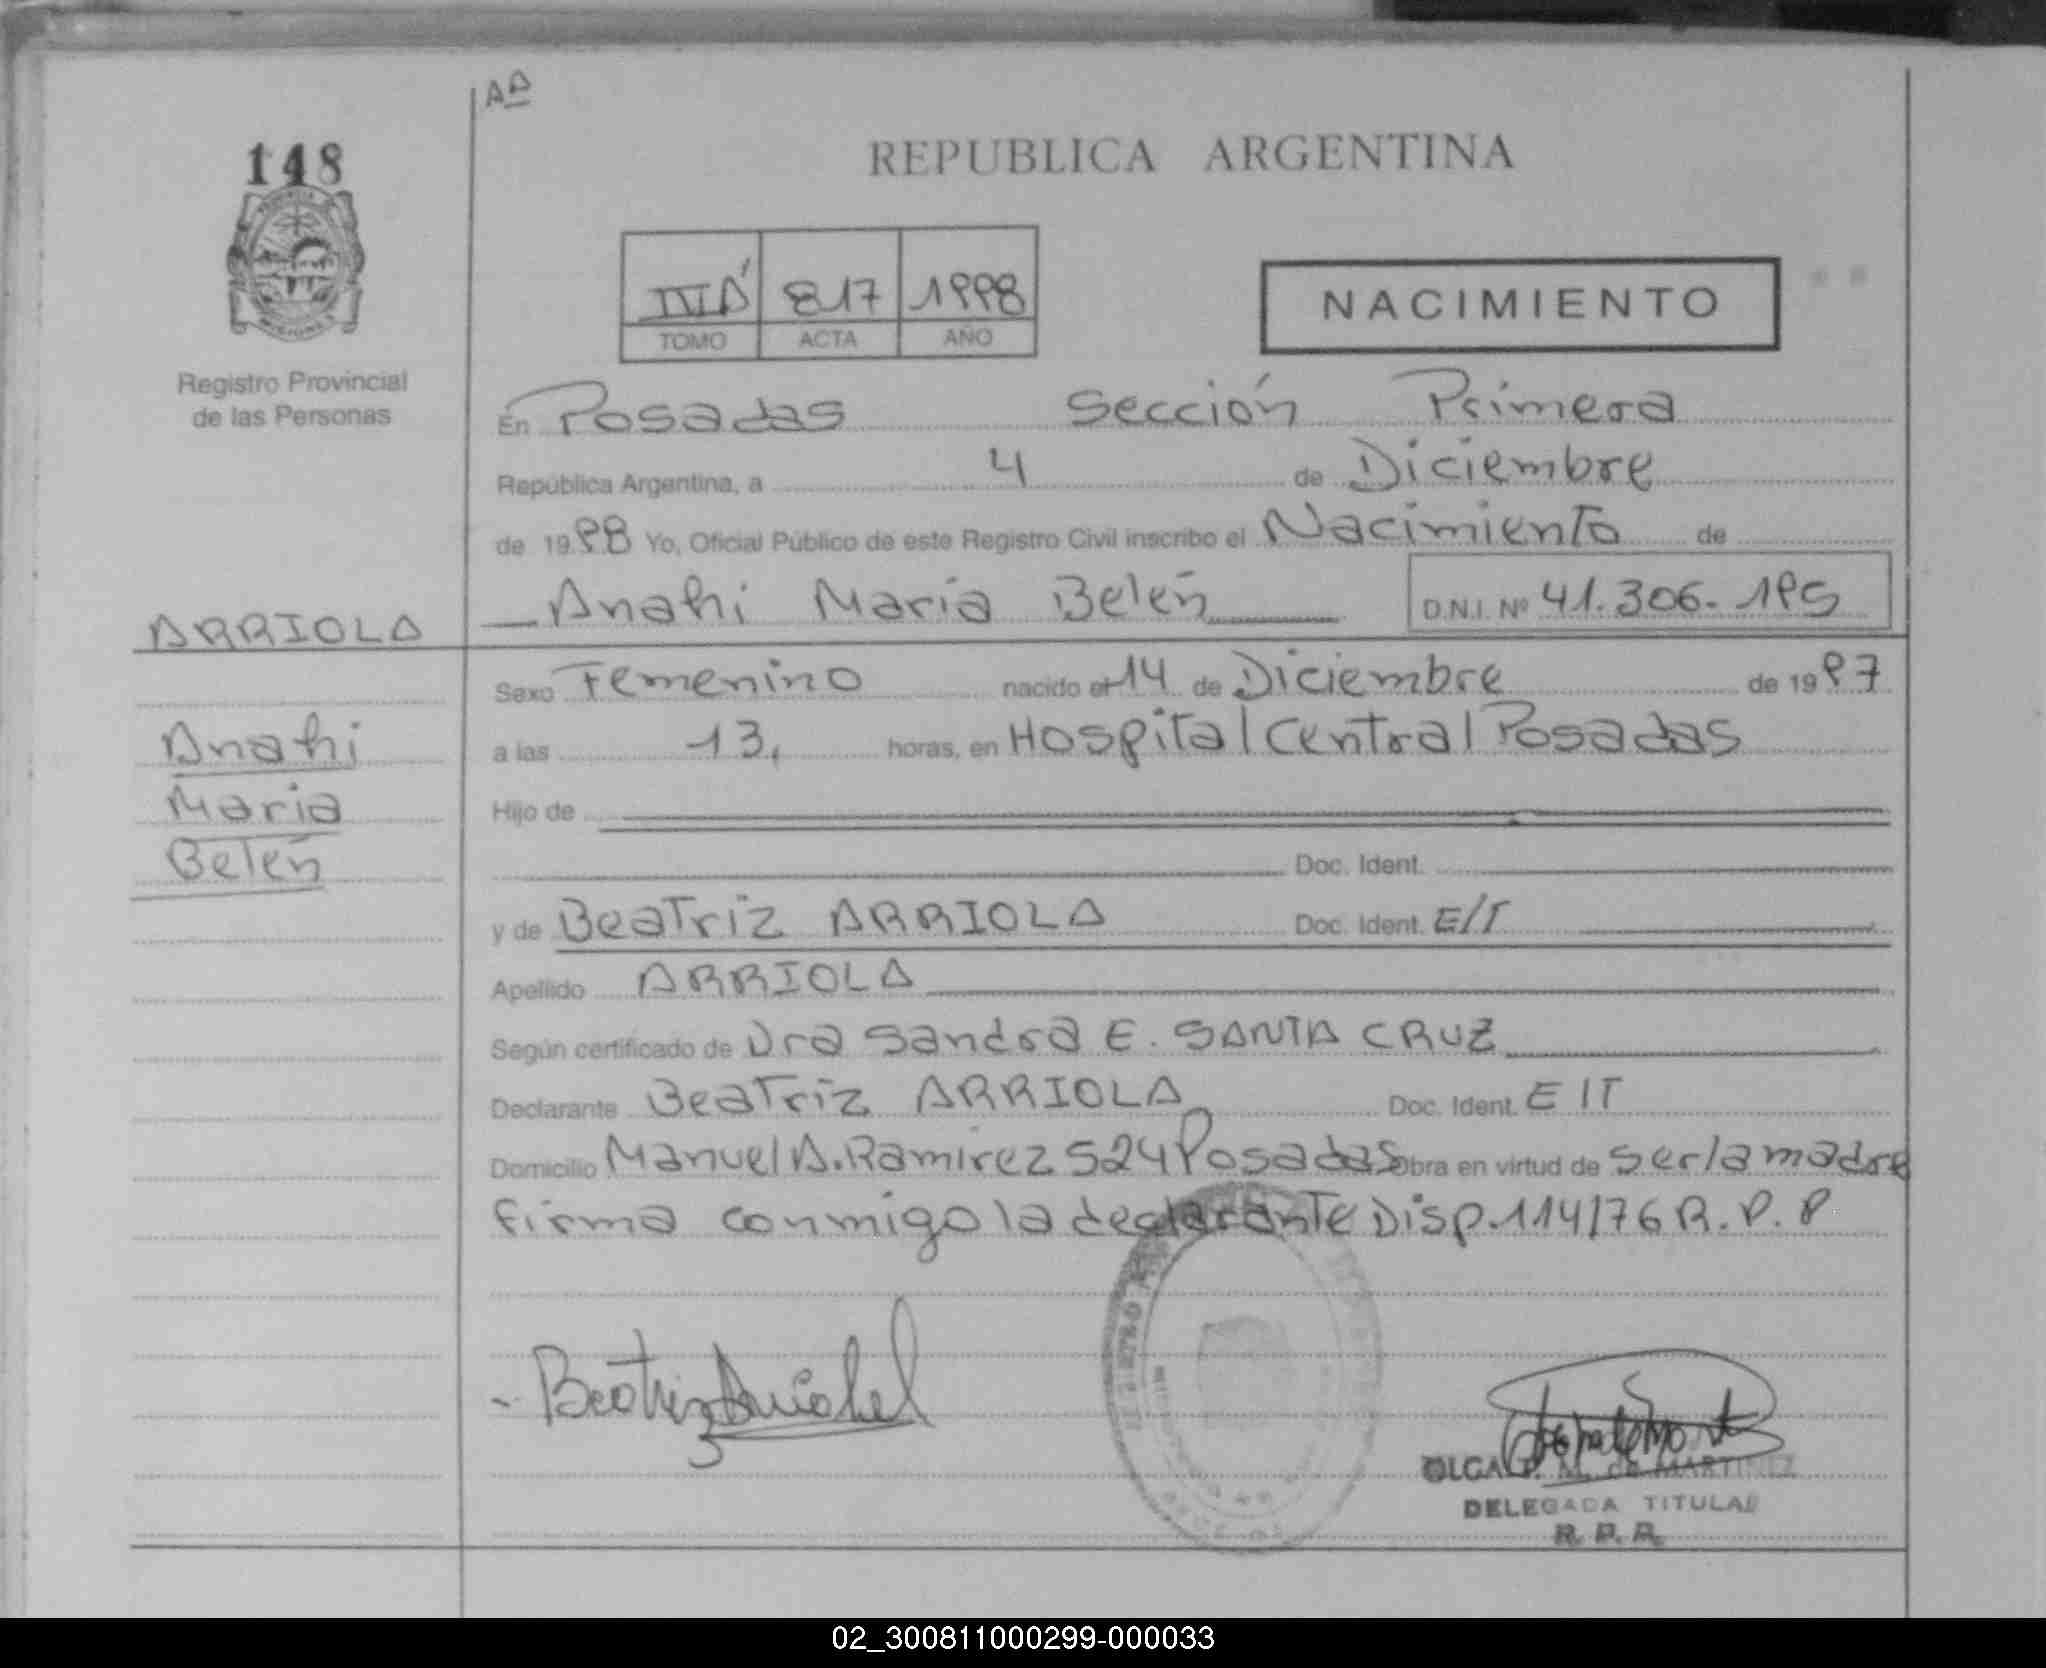 AD
148
REPUBLICA ARGENTINA
817 1998
TOMO ACTA AÑO
NACIMIENTO
Registro Provincial
de las Personas
En Posadas Sección Primera
República Argentina, a 4 de Diciembre
de 1998 Yo, Oficial Público de este Registro Civil inscribo el Nacimiento de
ARRIOLA Anahi Maria Belén D.N.I. Nº 41.306.195
Sexo Femenino nacido el 14 de Diciembre de 1997
Anahi
a las 13, horas, en Hospital Central Posadas
Maria
Hijo de
Belén
Doc. Ident.
y de Beatriz ARRIOLA Doc. Ident. E/T
Apellido ARRIOLA
Según certificado de Dra Sandra E. SANTA CRUZ
Declarante Beatriz ARRIOLA Doc. Ident. E/T
Domicilio Manuel A. Ramirez 524 Posadas Obra en virtud de ser la madre
firma conmigo la declarante Disp. 114/76 R.P.P
Beatriz
OLGA M. de MARTINEZ
DELEGADA TITULAR
R. P. P.
02_300811000299-000033